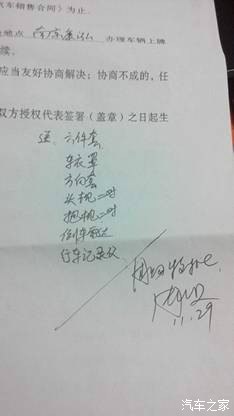 汽车销售合同》为止.
地点 办理车辆上牌
续.
应当友好协商解决；协商不成的，任
双方授权代表签署（盖章）之日起生
送 六件套
车衣罩
方向套
头枕一对
抱枕一对
倒车雷达
行车记录仪
11.29
汽车之家